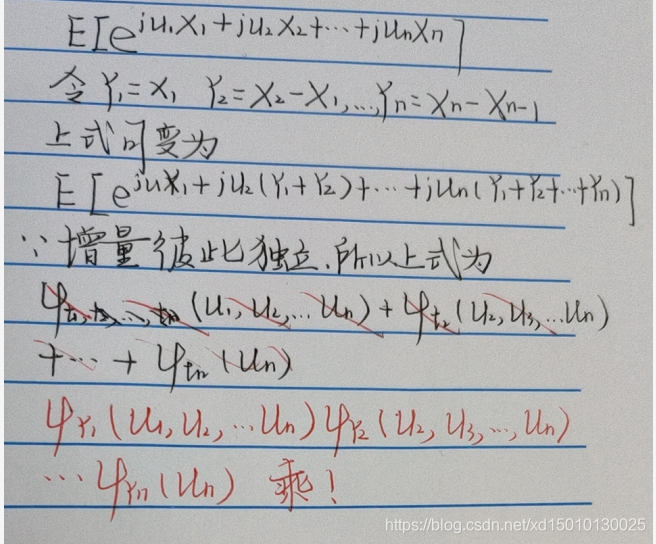 E[e^{ju₁X₁+ju₂X₂+···+juₙXₙ}]
令 Y₁=X₁ Y₂=X₂-X₁,...,Yₙ=Xₙ-Xₙ₋₁
上式可变为
E[e^{ju₁X₁+ju₂(Y₁+Y₂)+···+juₙ(Y₁+Y₂+···+Yₙ)}]
∵增量彼此独立,所以上式为
φ_{t₁,t₂,...,tₙ}(u₁,u₂,...uₙ)+φ_{t₂}(u₂,u₃,...uₙ)
+···+φ_{tₙ}(uₙ)
φ_{Y₁}(u₁,u₂,···uₙ)φ_{Y₂}(u₂,u₃,···,uₙ)
···φ_{Yₙ}(uₙ) 乘!
https://blog.csdn.net/xd15010130025